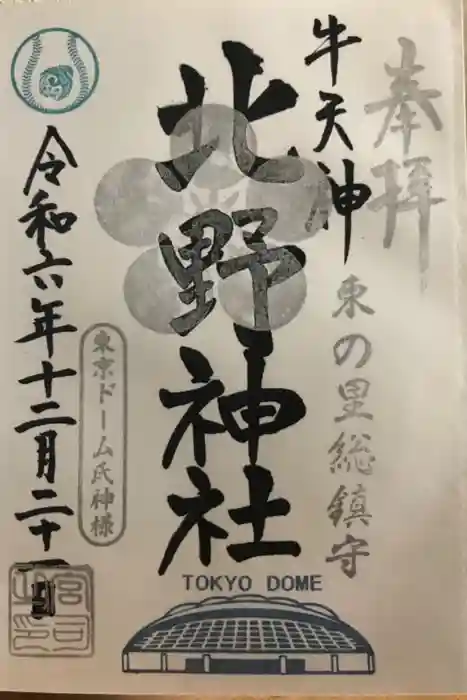 奉拝
牛天神
東の里総鎮守
北野神社
東京ドーム氏神様
令和六年十二月二十一日
宮司之印
TOKYO DOME